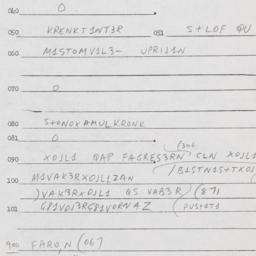 040. O
050 KRENKT1NT3R 051 S+LOF QU
060 M1STOMV1L3- UPR1J1N
070 O
080 S+ONOXAMULKRONK
081 O
090 XOJL1 QAP FAGRES3RN CLN XOJL1
100 M1VAK3RXOJL1ZAN /B1STN1S+TXOJ
)VAK3RXOJL1 QS VAB3R (87)
101 G81VOJ3RG81VORNAZ (PUS+AT1
900 FARO,N (06)